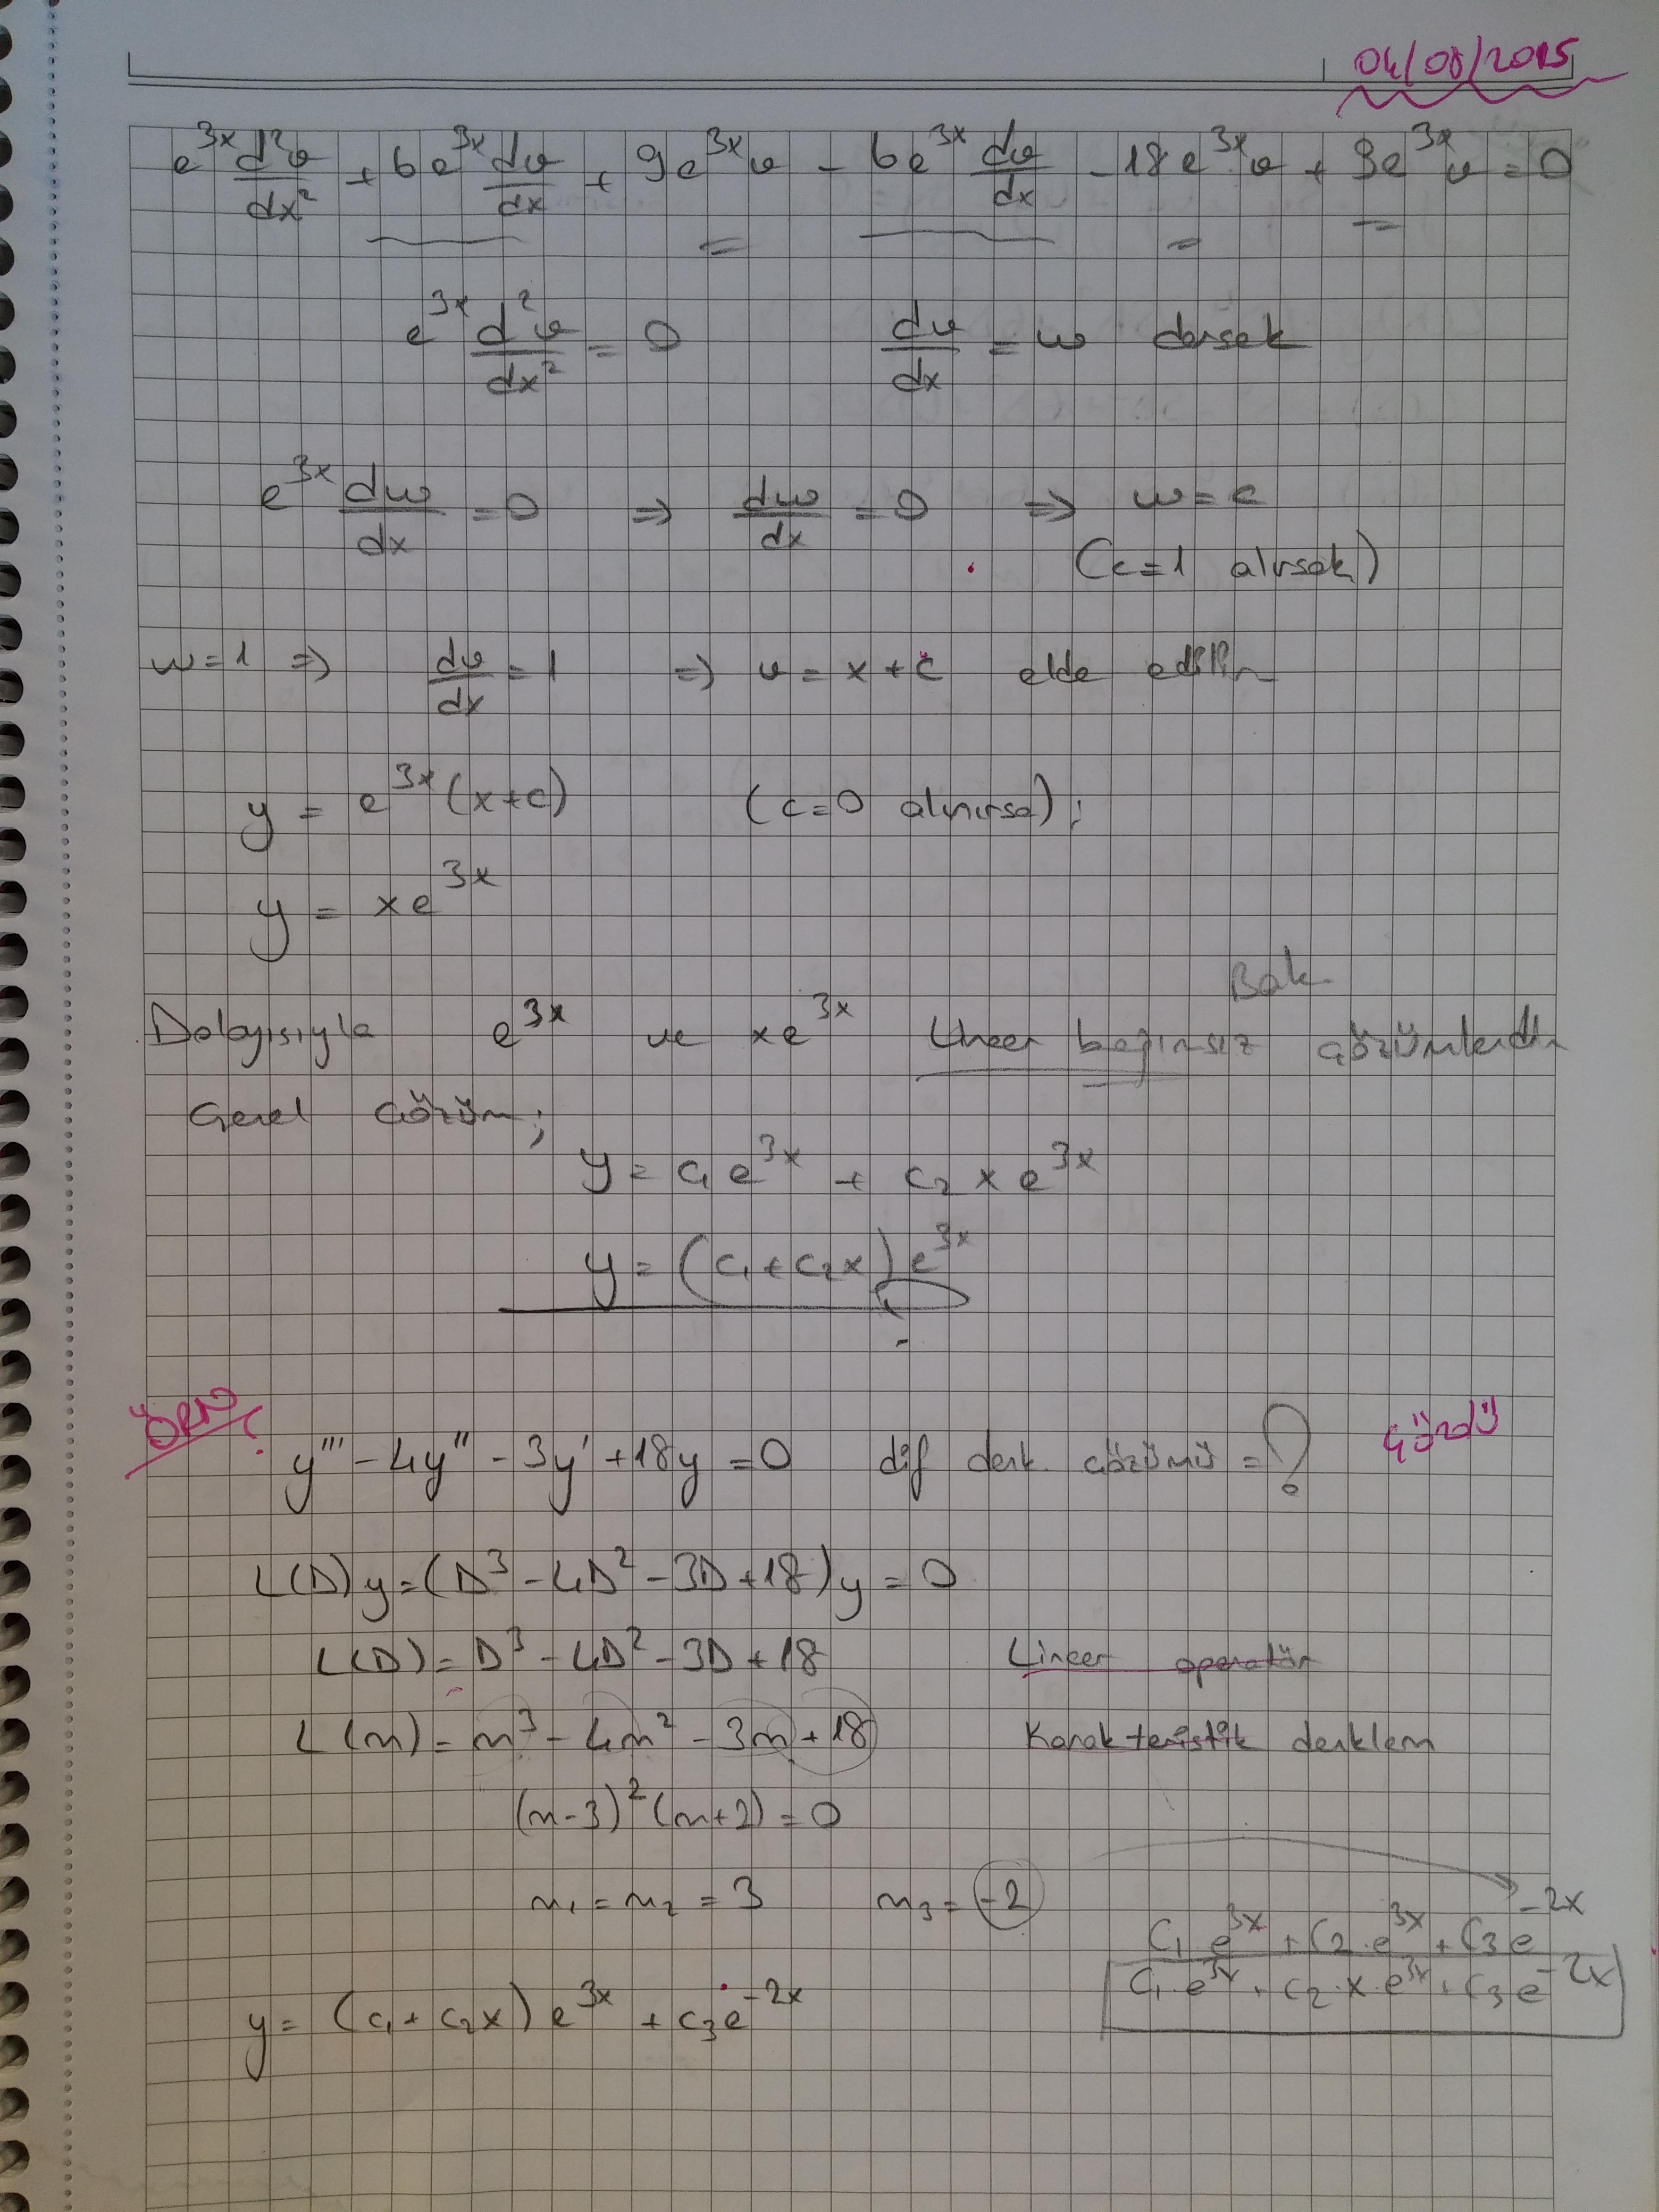 04/08/2015
e^{3x} d²v/dx² + 6e^{3x} dv/dx + 9e^{3x}v - 6e^{3x} dv/dx - 18e^{3x}v + 9e^{3x}v = 0
e^{3x} d²v/dx² = 0 dv/dx = w dersek
e^{3x} dw/dx = 0 ⇒ dw/dx = 0 ⇒ w = c
(c=1 alırsak)
w=1 ⇒ dv/dx = 1 ⇒ v = x + c elde edilir
y = e^{3x}(x+c) (c=0 alınırsa);
y = xe^{3x}
Bak
Dolayısıyla e^{3x} ve xe^{3x} Lineer bağımsız çözümlerdir
Genel çözüm;
y = c₁e^{3x} + c₂xe^{3x}
y = (c₁+c₂x)e^{3x}
ÖRN: y''' - 4y'' - 3y' + 18y = 0 dif denk. çözümü = ? çözdü
L(D)y = (D³ - 4D² - 3D + 18)y = 0
L(D) = D³ - 4D² - 3D + 18 Lineer operatör
L(m) = m³ - 4m² - 3m + 18 Karakteristik denklem
(m-3)²(m+2) = 0
m₁ = m₂ = 3 m₃ = -2
C₁.e^{3x} + C₂.e^{3x} + C₃e^{-2x}
C₁.e^{3x} + C₂.x.e^{3x} + C₃e^{-2x}
y = (c₁+c₂x)e^{3x} + c₃e^{-2x}